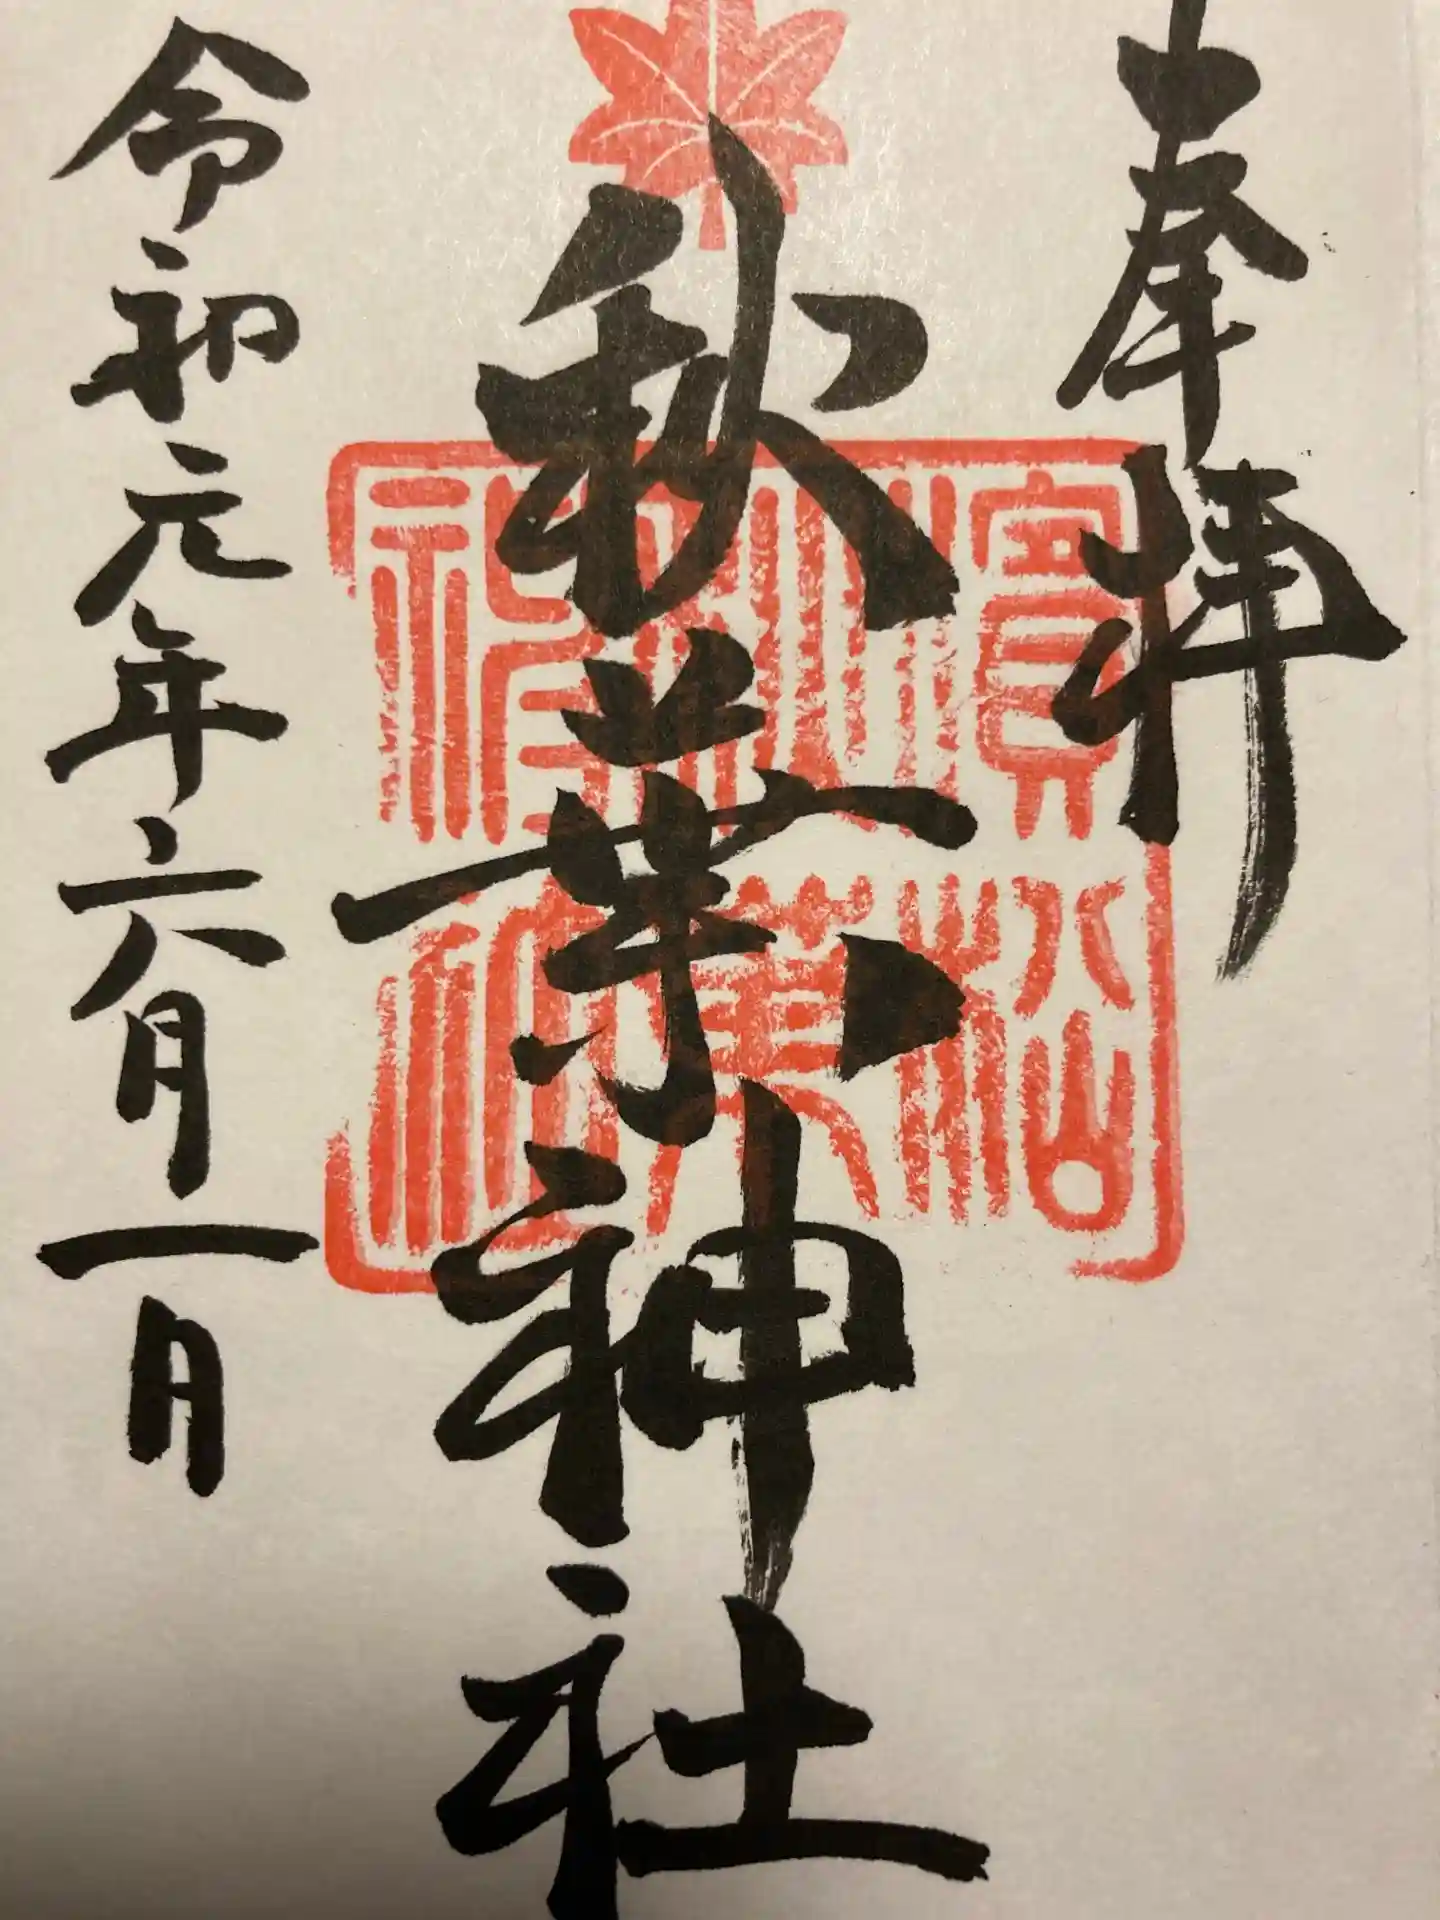 奉拝
秋葉神社
令和元年六月一日
濱松
秋葉
神社